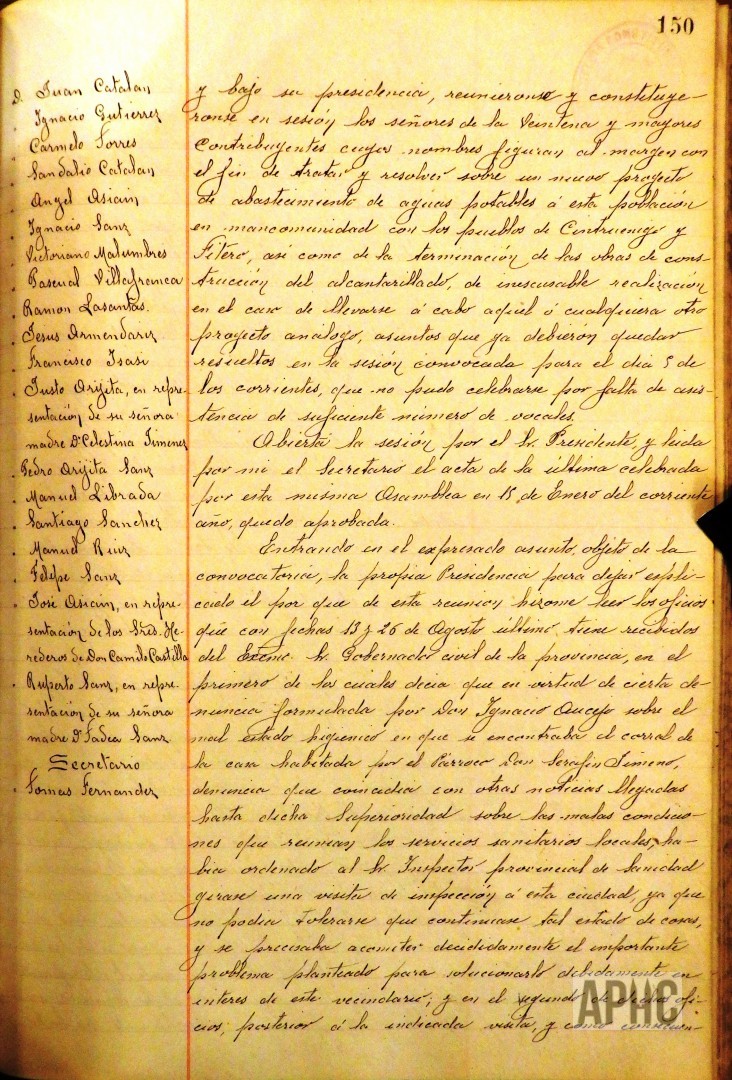 150
D. Juan Catalan
" Ignacio Gutierrez
" Carmelo Torres
" Sandalio Catalan
" Angel Asiain
" Ignacio Sanz
" Victoriano Malumbres
" Pascual Villafranca
" Ramon Lasantas
" Jesus Armendariz
" Francisco Isasi
" Justo Orijita, en repre-
sentación de su señora
madre Dª Celestina Jimenez
" Pedro Orijita Sanz
" Manuel Librada
" Santiago Sanchez
" Manuel Ruiz
" Felipe Sanz
" José Asiain, en repre-
sentación de los Sres. He-
rederos de Don Camilo Castilla
" Ruperto Sanz, en repre-
sentación de su señora
madre Dª Tadea Sanz
Secretario
" Tomas Fernandez
y bajo su presidencia, reunieronse y constituye-
ronse en sesión los señores de la Veintena y mayores
contribuyentes cuyos nombres figuran al margen con
el fin de tratar y resolver sobre un nuevo proyecto
de abastecimiento de aguas potables á esta población
en mancomunidad con los pueblos de Cintruenigo y
Fitero, así como de la terminación de las obras de cons-
trucción del alcantarillado, de inescusable realización
en el caso de llevarse á cabo aquel ó cualquiera otro
proyecto análogo, asuntos que ya debieron quedar
resueltos en la sesión convocada para el dia 5 de
los corrientes, que no pudo celebrarse por falta de asis-
tencia de suficiente número de vocales.
Abierta la sesión por el Sr. Presidente, y leida
por mi el Secretario el acta de la última celebrada
por esta misma Asamblea en 15 de Enero del corriente
año, quedo aprobada.
Entrando en el expresado asunto, objeto de la
convocatoria, la propia Presidencia para dejar espli-
cado el por que de esta reunion hizome leer los oficios
que con fechas 13 y 26 de Agosto último tiene recibidos
del Exemo. Sr. Gobernador civil de la provincia, en el
primero de los cuales decia que en virtud de cierta de-
nuncia formulada por Don Ignacio Aucejo sobre el
mal estado higienico en que se encontraba el corral de
la casa habitada por el Párroco Don Serafin Jimeno,
denuncia que coincidia con otras noticias llegadas
hasta dicha Superioridad sobre las malas condicio-
nes que reunian los servicios sanitarios locales, ha-
bia ordenado al Sr. Inspector provincial de Sanidad
girase una visita de inspección á esta ciudad, ya que
no podia tolerarse que continuase tal estado de cosas,
y se precisaba acometer decididamente el importante
problema planteado para solucionarlo debidamente en
interes de este vecindario; y en el segundo de dichos ofi-
cios, posterior á la indicada visita, y como consecuen-
APHC